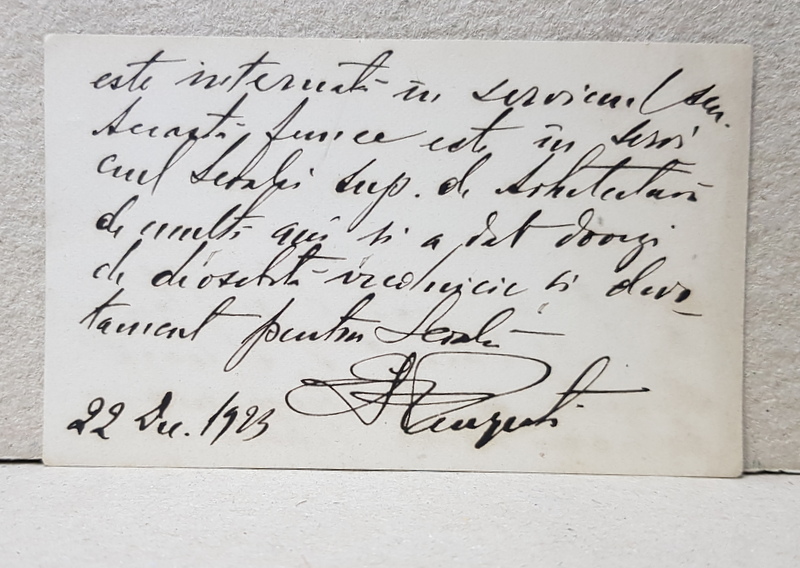 este internată în serviciul său.
Această femee este în servi
ciul Școalei sup. de Arhitectură
de mulți ani și a dat dovezi
de deosebită vrednicie și devo-
tament pentru Școală
22 Dec. 1923